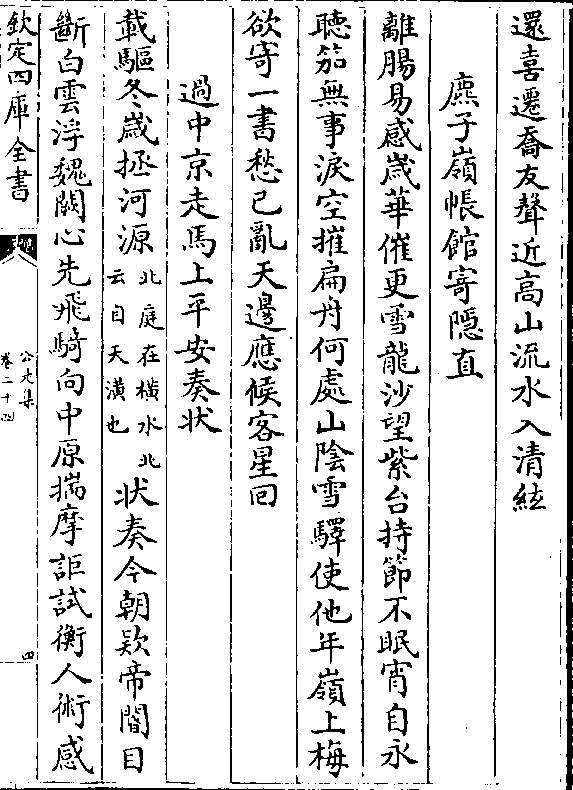 還喜遷喬友聲近高山流水入清絃
麃子嶺帳館寄隱直
離腸易感歳華催更雪龍沙望紫台持節不眠宵自永
聴笳無事淚空摧扁舟何處山陰雪驛使他年嶺上梅
欲寄一書愁已亂天邊應候客星回
過中京走馬上平安奏状
載驅冬歳拯河源北庭在横水北云自天潢也状奏今朝欵帝閽目
斷白雲浮魏闕心先飛騎向中原揣摩詎試衡人術感
欽定四庫全書
公是集
卷二十四
四